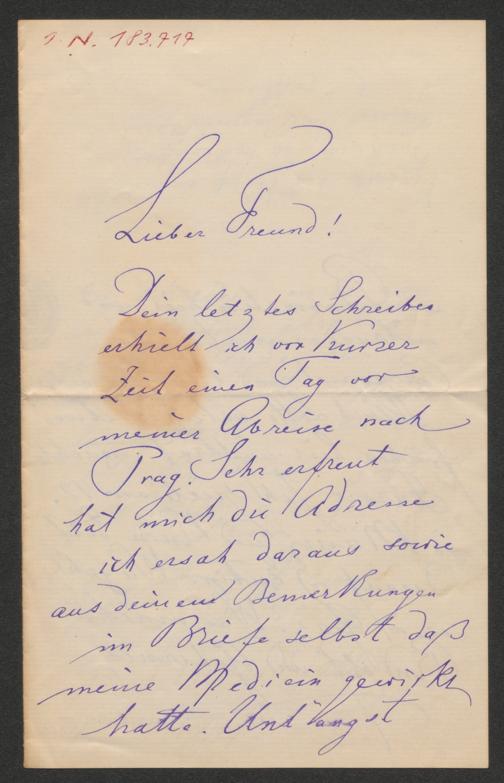 I. N. 183.717
Lieber Freund!
Dein letztes Schreiben
erhielt ich vor Kurzer
Zeit einen Tag vor
meiner Abreise nach
Prag. Sehr erfreut
hat mich die Adresse
ich ersah daraus sowie
aus deinen Bemerkungen
im Briefe selbst daß
meine Medicin gewirkt
hatte. Unlängst